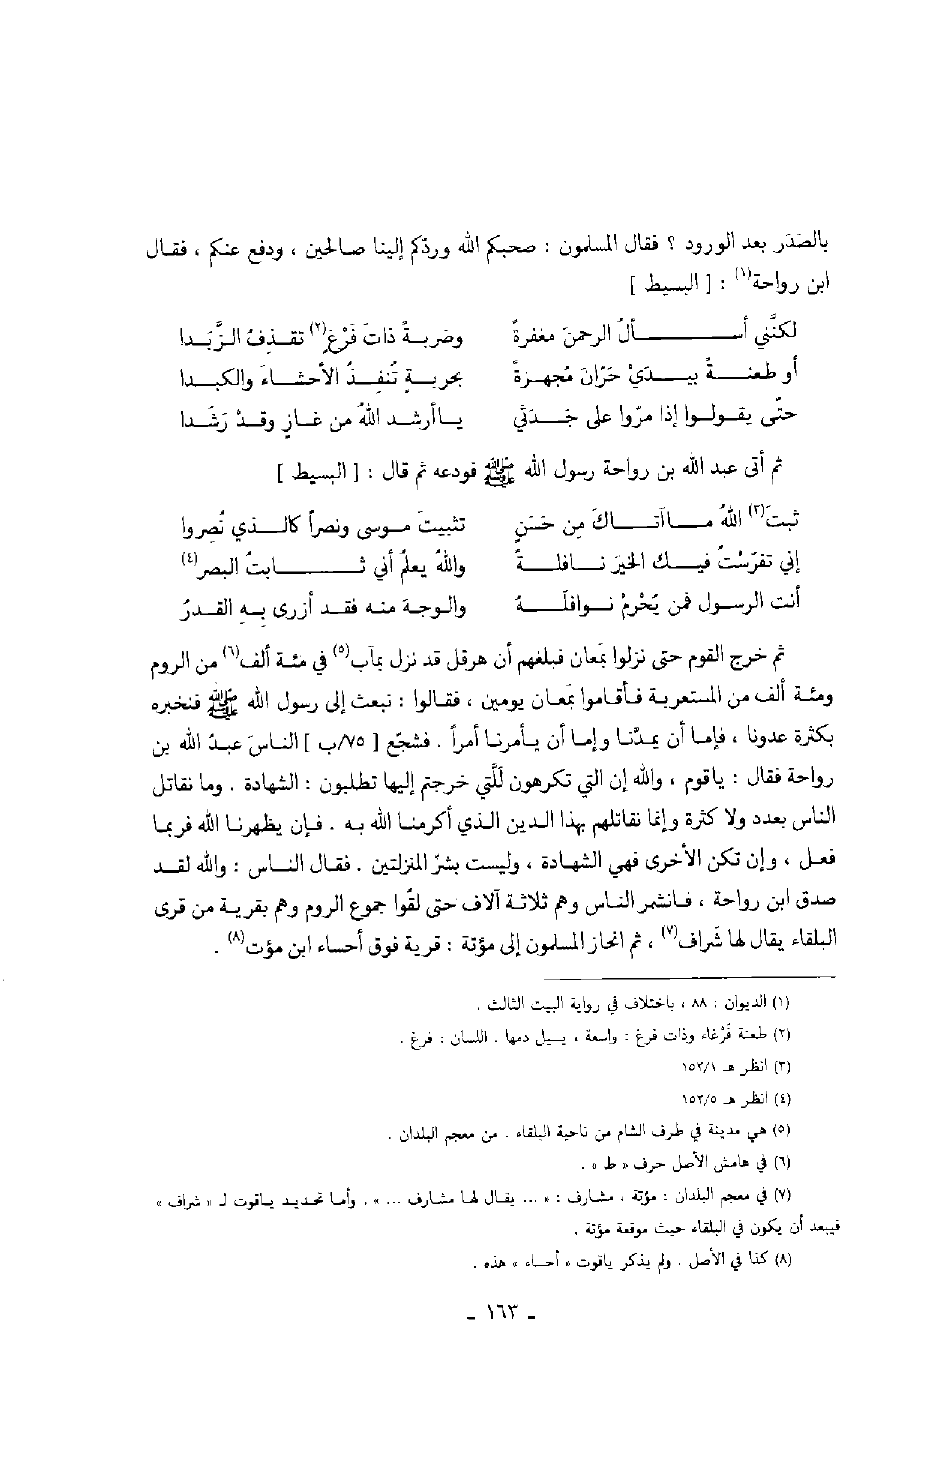 بالصَّدَر بعد الورود ؟ فقال المسلمون : صحبكم الله وردّكم إلينا صالحين ، ودفع عنكم ، فقال
ابن رواحة(١) : [ البسيط ]
لكنَّني أسألُ الرحمنَ مغفرةً وضربةً ذاتَ فَرْغٍ(٢) تقذِفُ الزَّبَدا
أو طعنةً بيدَيْ حَرّانَ مُجهِزةً بحربةٍ تُنفِذُ الأحشاءَ والكبدا
حتّى يقولوا إذا مرّوا على جَدَثي ياأرشد اللهُ من غازٍ وقدْ رَشَدا
ثم أتى عبد الله بن رواحة رسول الله ﷺ فودعه ثم قال : [ البسيط ]
ثبتَ(٣) اللهُ ماآتاكَ مِن حَسَنٍ تثبيتَ موسى ونصراً كالذي نُصِروا
إني تفرّسْتُ فيك الخيرَ نافلةً واللهُ يعلمُ أني ثابتُ البصر(٤)
أنت الرسول فمن يُحْرمْ نوافلَهُ والوجهَ منه فقد أزرى بهِ القدرُ
ثم خرج القوم حتى نزلوا بمَعان فبلغهم أن هرقل قد نزل بمآب(٥) في مئة ألف(٦) من الروم
ومئة ألف من المستعربة فأقاموا بمَعان يومين ، فقالوا : نبعث إلى رسول الله ﷺ فنخبره
بكثرة عدونا ، فإما أن يمدّنا وإما أن يأمرنا أمراً . فشجّع [ ٧٥/ب ] الناسَ عبدُ الله بن
رواحة فقال : ياقوم ، والله إن التي تكرهون لَلَّتي خرجتم إليها تطلبون : الشهادة . وما نقاتل
الناس بعدد ولا كثرة وإنما نقاتلهم بهذا الدين الذي أكرمنا الله به . فإن يظهرنا الله فربما
فعل ، وإن تكن الأخرى فهي الشهادة ، وليست بشرّ المنزلتين . فقال الناس : والله لقد
صدق ابن رواحة ، فانشمر الناس وهم ثلاثة آلاف حتى لقُوا جموع الروم وهم بقرية من قرى
البلقاء يقال لها شَراف(٧) ، ثم انحاز المسلمون إلى مؤتة : قرية فوق أحساء ابن مؤت(٨) .
(١) الديوان : ٨٨ ، باختلاف في رواية البيت الثالث .
(٢) طعنة فَرْغاء وذات فرغ : واسعة ، يسيل دمها . اللسان : فرغ .
(٣) انظر هـ ١٥٢/١
(٤) انظر هـ ١٥٢/٥
(٥) هي مدينة في طرف الشام من ناحية البلقاء . من معجم البلدان .
(٦) في هامش الأصل حرف « ط » .
(٧) في معجم البلدان : مؤتة ، مشارف : « ... يقال لها مشارف ... » . وأما تحديد ياقوت لـ « شراف »
فيبعد أن يكون في البلقاء حيث موقعة مؤتة .
(٨) كذا في الأصل . ولم يذكر ياقوت « أحساء » هذه .
- ١٦٣ -